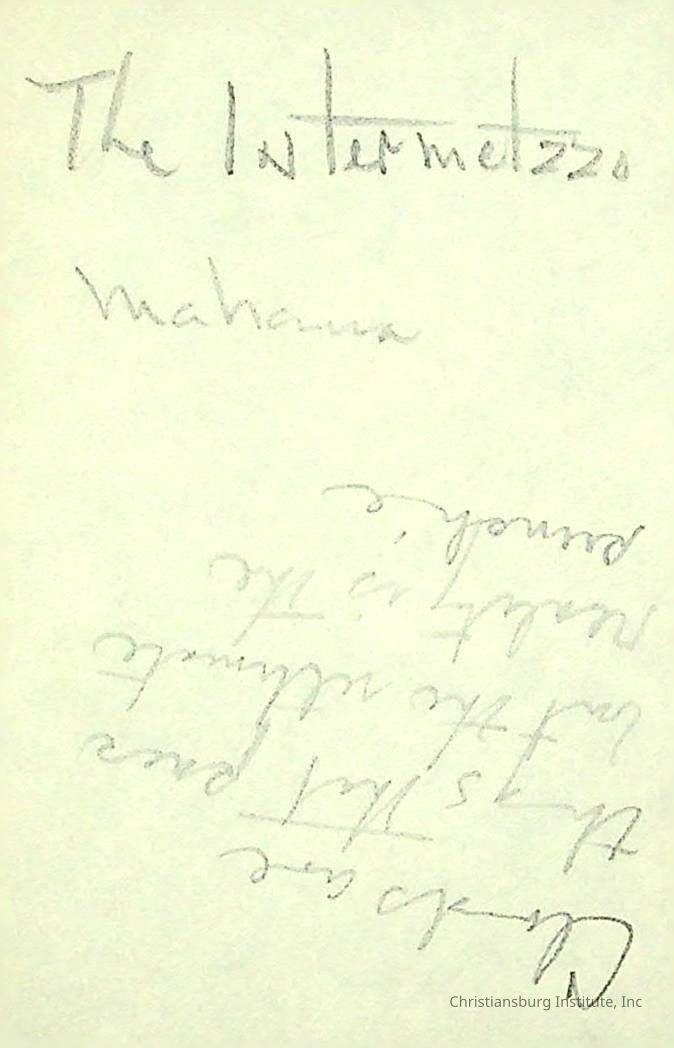 The Intermetzzo
Mahaña
Clouds are
things that pass
but the ultimate
reality is the
Christiansburg Institute, Inc